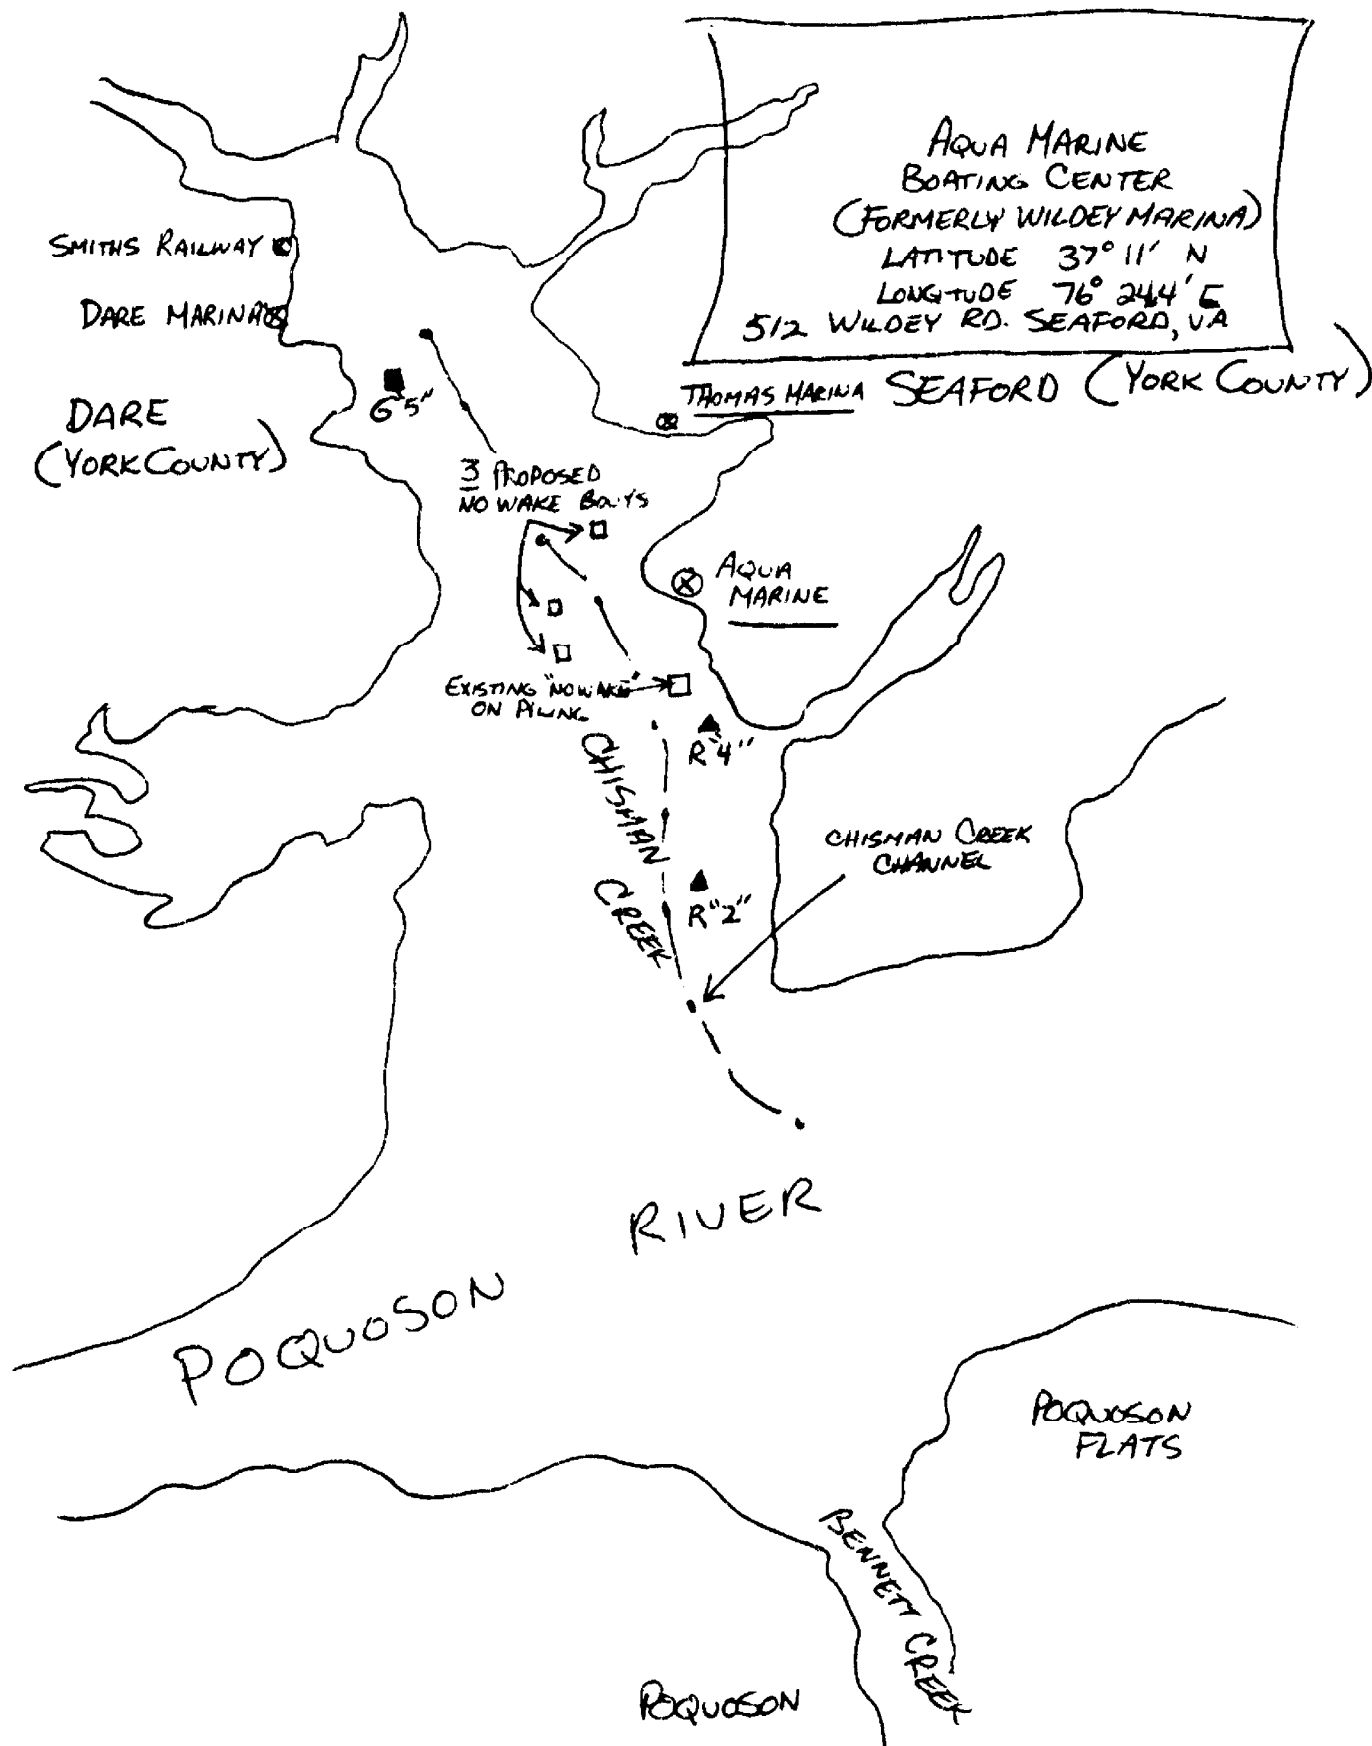 AQUA MARINE
BOATING CENTER
(FORMERLY WILDEY MARINA)
LATITUDE 37° 11' N
LONGITUDE 76° 24.4' E
512 WILDEY RD. SEAFORD, VA
SMITHS RAILWAY
DARE MARINA
G"5"
THOMAS MARINA
SEAFORD (YORK COUNTY)
DARE
(YORK COUNTY)
3 PROPOSED
NO WAKE BOUYS
AQUA
MARINE
EXISTING "NO WAKE"
ON PILING
R"4"
CHISMAN
CREEK
CHISMAN CREEK
CHANNEL
R"2"
RIVER
POQUOSON
POQUOSON
FLATS
BENNETT CREEK
POQUOSON